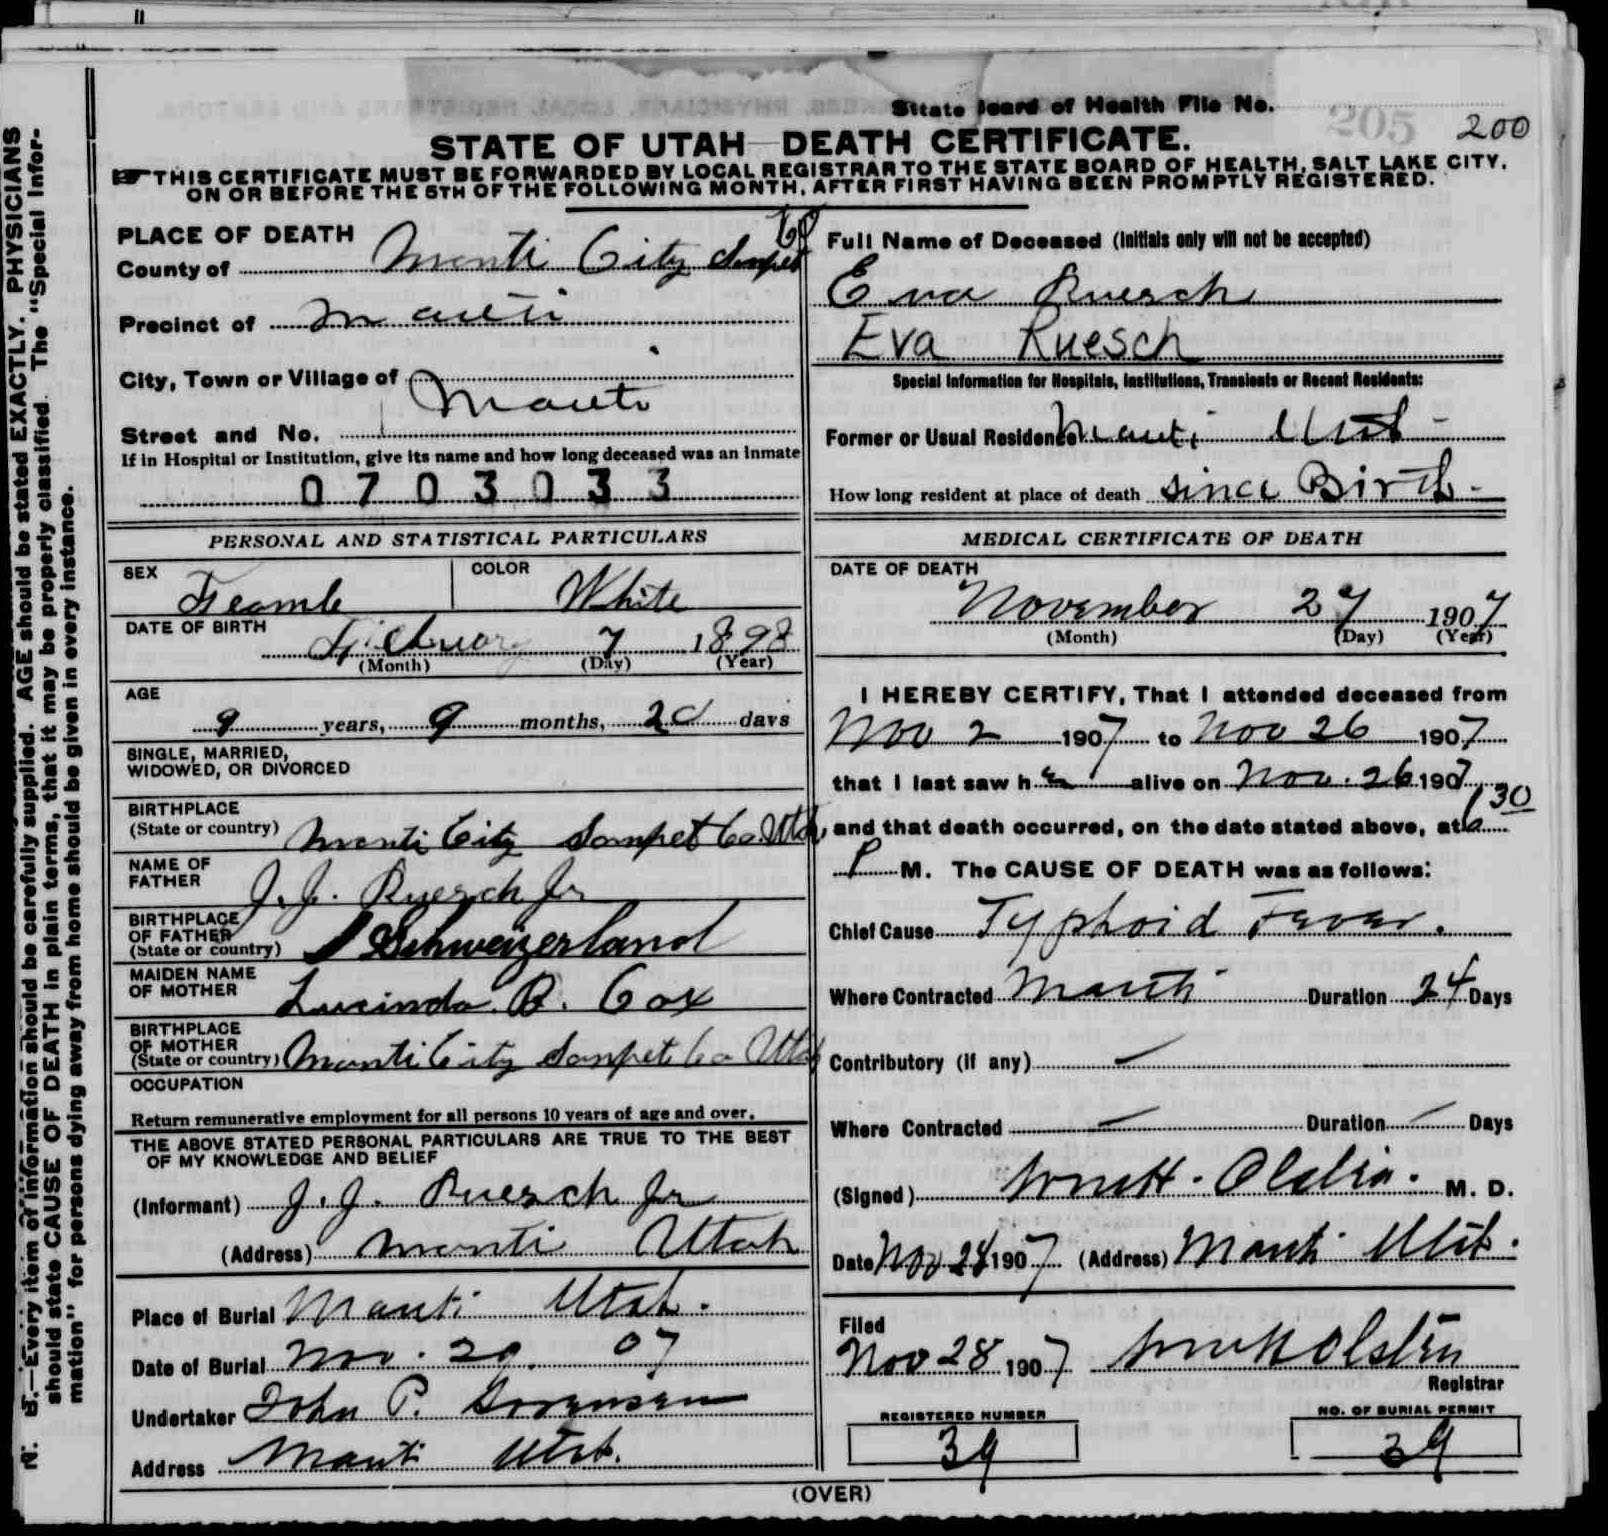 State Board of Health File No.
205 200
STATE OF UTAH—DEATH CERTIFICATE.
THIS CERTIFICATE MUST BE FORWARDED BY LOCAL REGISTRAR TO THE STATE BOARD OF HEALTH, SALT LAKE CITY,
ON OR BEFORE THE 5TH OF THE FOLLOWING MONTH, AFTER FIRST HAVING BEEN PROMPTLY REGISTERED.
N. B.—Every item of information should be carefully supplied. AGE should be stated EXACTLY. PHYSICIANS
should state CAUSE OF DEATH in plain terms, that it may be properly classified. The "Special Infor-
mation" for persons dying away from home should be given in every instance.
PLACE OF DEATH
County of Manti City Sanpet Co
Precinct of Manti
City, Town or Village of Manti
Street and No.
If in Hospital or Institution, give its name and how long deceased was an inmate
0703033
Full Name of Deceased (Initials only will not be accepted)
Eva Ruesch
Eva Ruesch
Special Information for Hospitals, Institutions, Transients or Recent Residents:
Former or Usual Residence Manti Utah
How long resident at place of death since Birth
PERSONAL AND STATISTICAL PARTICULARS
SEX Feamle COLOR White
DATE OF BIRTH
February 7 1898
(Month) (Day) (Year)
AGE
9 years, 9 months, 20 days
SINGLE, MARRIED,
WIDOWED, OR DIVORCED
BIRTHPLACE
(State or country) Manti City Sanpet Co Utah
NAME OF
FATHER J. J. Ruesch Jr
BIRTHPLACE
OF FATHER
(State or country) Schweizerland
MAIDEN NAME
OF MOTHER Lucinda B. Cox
BIRTHPLACE
OF MOTHER
(State or country) Manti City Sanpet Co Utah
OCCUPATION
Return remunerative employment for all persons 10 years of age and over.
THE ABOVE STATED PERSONAL PARTICULARS ARE TRUE TO THE BEST
OF MY KNOWLEDGE AND BELIEF
(Informant) J. J. Ruesch Jr
(Address) Manti Utah
Place of Burial Manti Utah.
Date of Burial Nov. 29. 07
Undertaker John P. Sorensen
Address Manti Utah.
MEDICAL CERTIFICATE OF DEATH
DATE OF DEATH
November 27 1907
(Month) (Day) (Year)
I HEREBY CERTIFY, That I attended deceased from
Nov 2 1907 to Nov 26 1907
that I last saw her alive on Nov. 26 1907
and that death occurred, on the date stated above, at 6 30
P M. The CAUSE OF DEATH was as follows:
Chief Cause Typhoid Fever.
Where Contracted Manti Duration 24 Days
Contributory (if any)
Where Contracted Duration Days
(Signed) M. D.
Date Nov 28 1907 (Address) Manti Utah.
Filed
Nov 28 1907 Wm H Olsten
Registrar
REGISTERED NUMBER
39
NO. OF BURIAL PERMIT
39
(OVER)